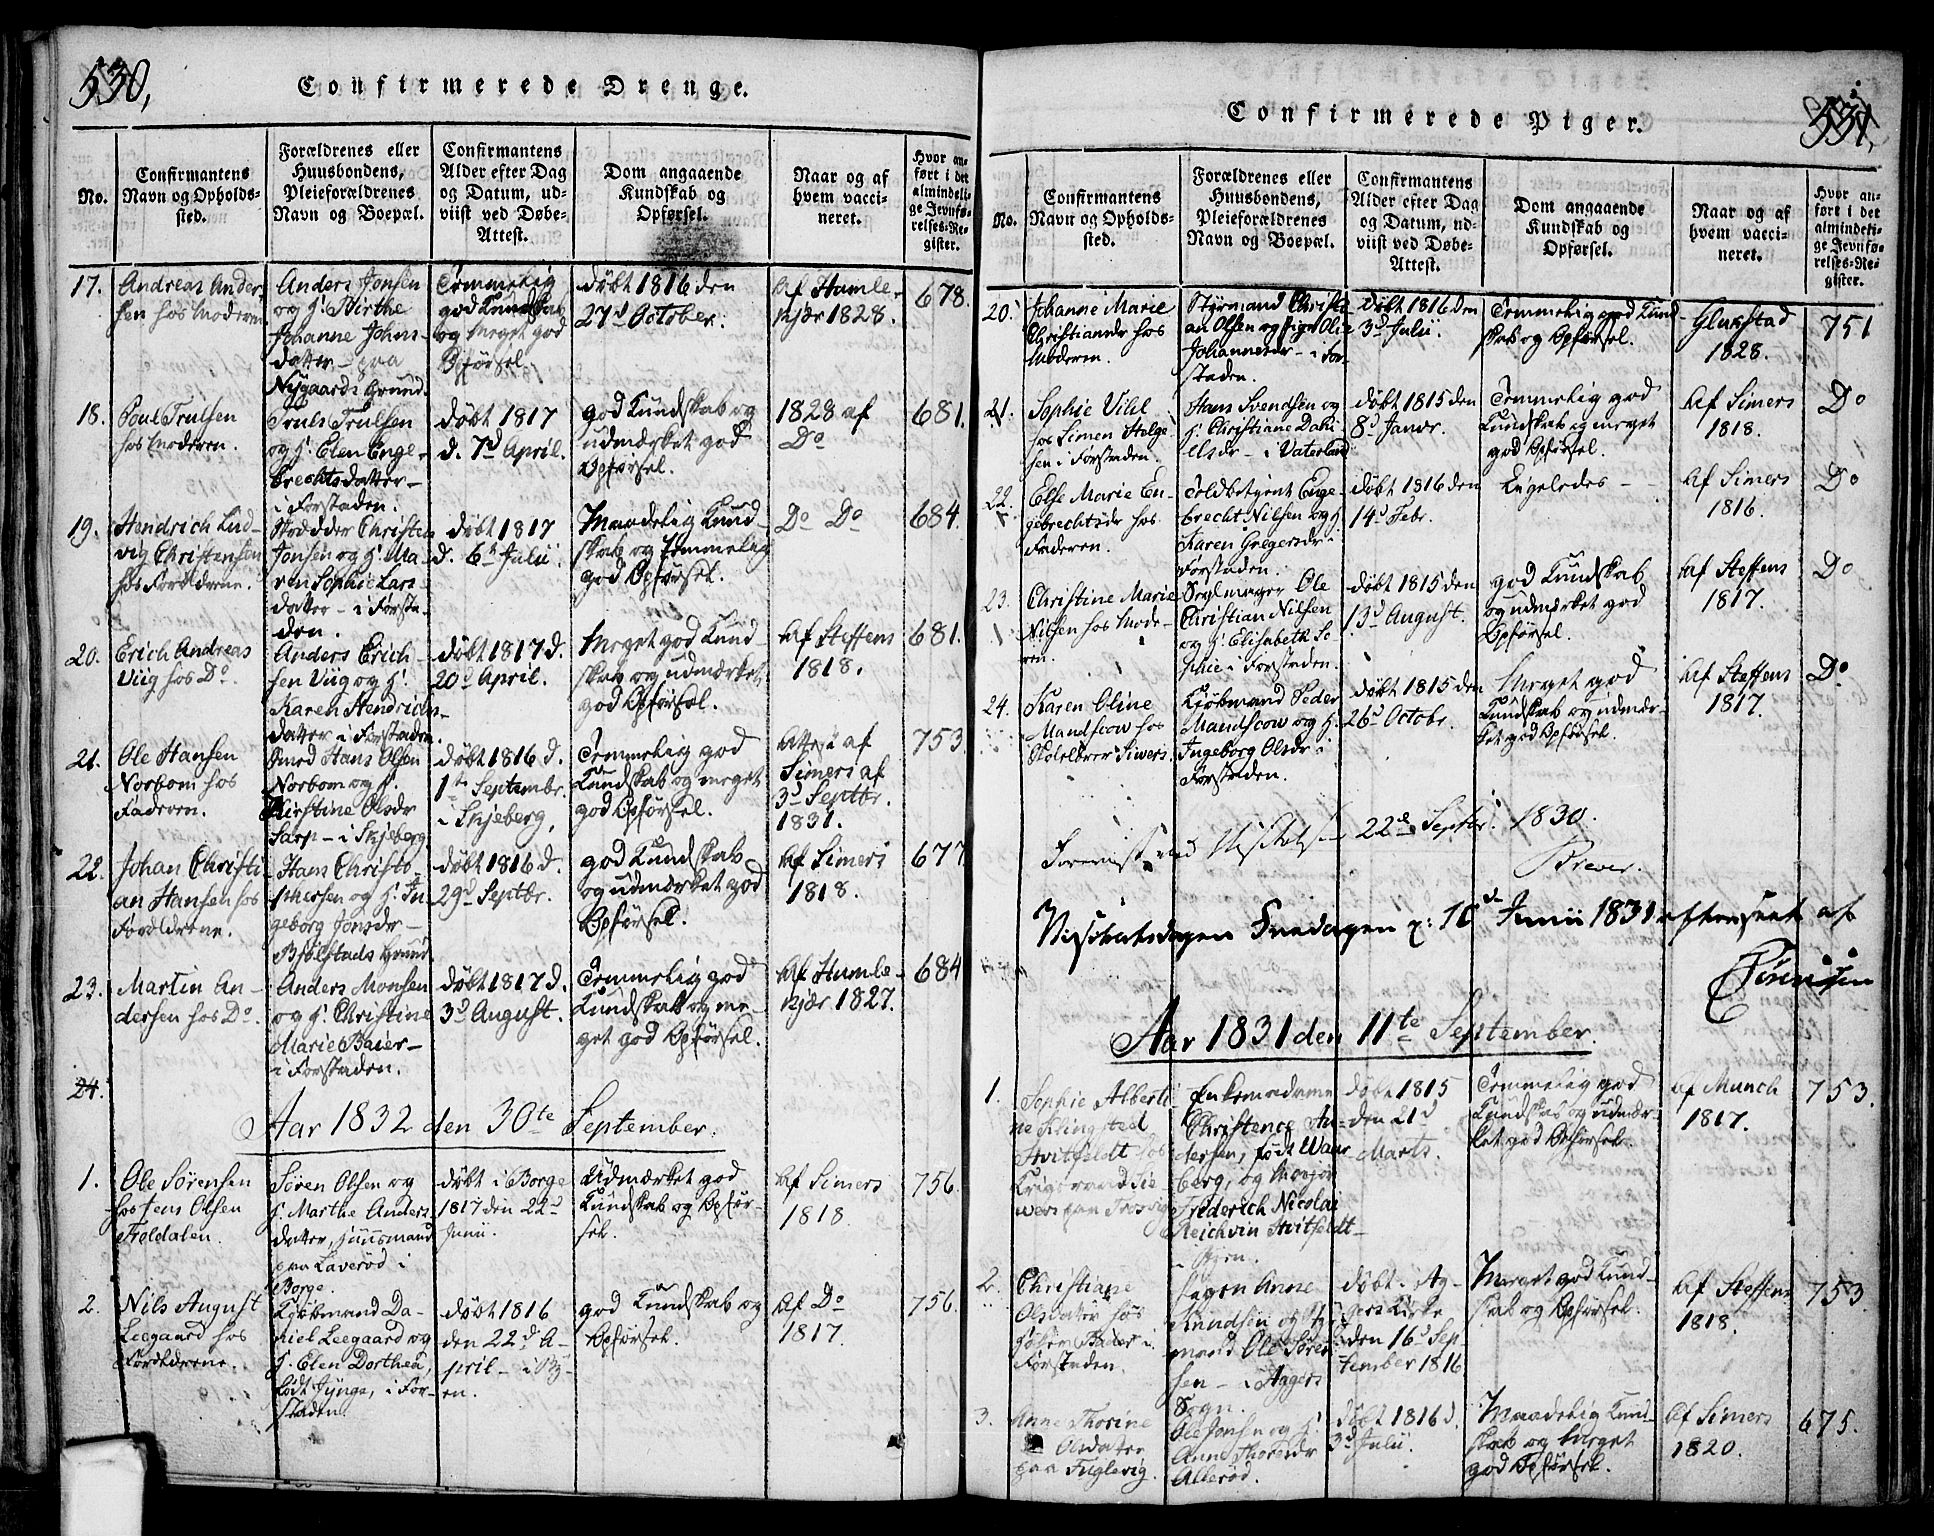 530,
Confirmerede Drenge.
No.
Confirmantens
Navn og Opholds-
sted.
Forældrenes eller
Huusbondens,
Pleieforældrenes
Navn og Boepæl.
Confirmantens
Alder efter Dag
og Datum, ud-
viist ved Døbe-
Attest.
Dom angaaende
Kundskab og
Opførsel.
Naar og af
hvem vacci-
neret.
Hvor an-
ført i det
almindeli-
ge Jevnfø-
relses-Re-
gister.
17.
Andreas Ander-
sen hos Moderen
Anders Jonsen
og h. Birthe
Johanne Johns-
datter - paa
Nygaards Grund.
Temmelig
god Kundskab
og meget god
Opførsel.
døbt 1816 den
27d October.
Af Humle-
kjær 1828.
678.
18.
Poul Trulsen
hos Moderen.
Truls Trulsen
og h. Elen Enge-
brechtsdatter -
i Forstaden.
døbt 1817
d. 7d April.
god Kundskab og
udmærket god
Opførsel.
1828 af
Do
681.
19.
Hendrich Lud-
vig Christensen
hos Forældrene.
Christen
Jonsen og h. Ma-
ren Sophie Lars-
datter - i Forsta-
den.
døbt 1817
d. 6te Julii.
Maadelig Kund-
skab og temmelig
god Opførsel.
Do Do
684.
20.
Erich Andreas
Viig hos Do.
Anders Erich-
sen Viig og h.
Karen Hendrichs-
datter i Forstaden.
døbt 1817 d.
20d April.
Meget god Kund-
skab og udmærket
god Opførsel.
Af Steffens
1818.
681.
21.
Ole Hansen
Norbom hos
Faderen.
Smed Hans Olsen
Norbom og h.
Kirstine Olsdr
Sarp - i Skjeberg
døbt 1816 d.
1te Septembr.
i Skjeberg,
Temmelig god
Kundskab og meget
god Opførsel.
Attest af
Simers af
3d Septbr.
1831.
753
22.
Johan Christi-
an Hansen hos
Forældrene.
Hans Christo-
phersen og h. In-
geborg Jonsdr -
Bjølstads Grund.
døbt 1816 d.
29d Septbr.
god Kundskab
og udmærket god
Opførsel.
Af Simers
1818.
677
23.
Martin An-
dersen hos Do.
Anders Monsen
og h. Christine
Marie Baier -
i Forstaden.
døbt 1817 d.
3d August.
Temmelig god
Kundskab og me-
get god Opførsel.
Af Humle-
kjær 1827.
684
24.
Aar 1832 den 30te September.
1.
Ole Sørensen
hos Jens Olsen
Feldalen.
Søren Olsen og
h. Marthe Anders-
datter, Huusmand
paa Laverød i
Borge.
døbt i Borge
1817 den 22d
Junii.
Udmærket god
Kundskab og Opfør-
sel.
Af Simers
1818.
756.
2.
Nils August
Leegaard hos
Forældrene.
Kjøbmand Da-
niel Leegaard og
h. Elen Dorthea,
født Jynge, i For-
staden.
døbt 1816
den 22d A-
pril - i By-
en.
god Kundskab og
Opførsel.
Af Do
1817.
756.
531,
Confirmerede Piger.
No.
Confirmantens
Navn og Opholds-
sted.
Forældrenes eller
Huusbondens,
Pleieforældrenes
Navn og Boepæl.
Confirmantens
Alder efter Dag
og Datum, ud-
viist ved Døbe-
Attest.
Dom angaaende
Kundskab og
Opførsel.
Naar og af
hvem vacci-
neret.
Hvor an-
ført i det
almindeli-
ge Jevnfø-
relses-Re-
gister.
20.
Johanne Marie
Christiansdr hos
Moderen.
Styrmand Christi-
an Olsen og Pigen Olie
Johannesdr - i For-
staden.
døbt 1816 den
3d Julii.
Temmelig god Kund-
skab og Opførsel.
Glukstad
1828.
751
21.
Sophie Vihl
hos Simen Helge-
sen i Forstaden.
Hans Svendsen og
h. Christiane Dani-
elsdr - i Vaterland
døbt 1815 den
8d Janr.
Temmelig god
Kundskab og meget
god Opførsel.
Af Simers
1818.
Do
22.
Else Marie En-
gebrechtsdr hos
Faderen.
Toldbetjent Enge-
brecht Nilsen og h.
Karen Gregersdr i
Forstaden.
døbt 1816 den
14d Febr.
Ligeledes -
Af Simers
1816.
Do
23.
Christine Marie
Nilsen hos Mode-
ren.
Seylmager Ole
Christian Nilsen
og h. Elisabeth So-
phie i Forstaden.
døbt 1815 den
13d August.
god Kundskab
og udmærket god
Opførsel.
Af Steffens
1817.
Do
24.
Karen Oline
Mandscow hos
Siwers.
Kjøbmand Peder
Mandscow og h.
Ingeborg Olsdr i
Forstaden.
døbt 1815 den
26d Octobr.
Meget god
Kundskab og udmær-
ket god Opførsel.
Af Steffens
1817.
Do
Foreviist ved Visitatsen 22de Septbr. 1830.
Brever.
Visitatsdagen Fredagen d: 10de Junii 1831 efterseet af
Sørensen
Aar 1831 den 11te September.
1.
Sophie Alberti-
ne Klingsted
Hvitfeldt hos
Krigsraad Si-
wers paa
Enkemadame
Christence An-
dersen, født Waar-
berg, og Major
Frederich Nicolai
Reichvin Hvitfeldt -
i Byen.
døbt 1815
den 21d
Marts.
Temmelig god
Kundskab og udmær-
ket god Opførsel.
af Munch
1817.
753.
2.
Christiane
Olsdatter hos
Baier i
Forstaden.
Pigen Anne
Knudsen og Styr-
mand Ole Søren-
sen - i Aagers
Sogn.
døbt i Ag-
gers Kirke
den 16d Sep-
tember 1816
Meget god Kund-
skab og Opførsel.
Af Steffens
1818.
753.
3.
Anne Thorine
Olsdatter
paa Fuglevig.
Ole Jonsen og h.
Anne Thoresdr
Allerød.
døbt 1816 d.
3d Julii.
Maadelig Kund-
skab og meget
god Opførsel.
Af Simers
1820.
675.